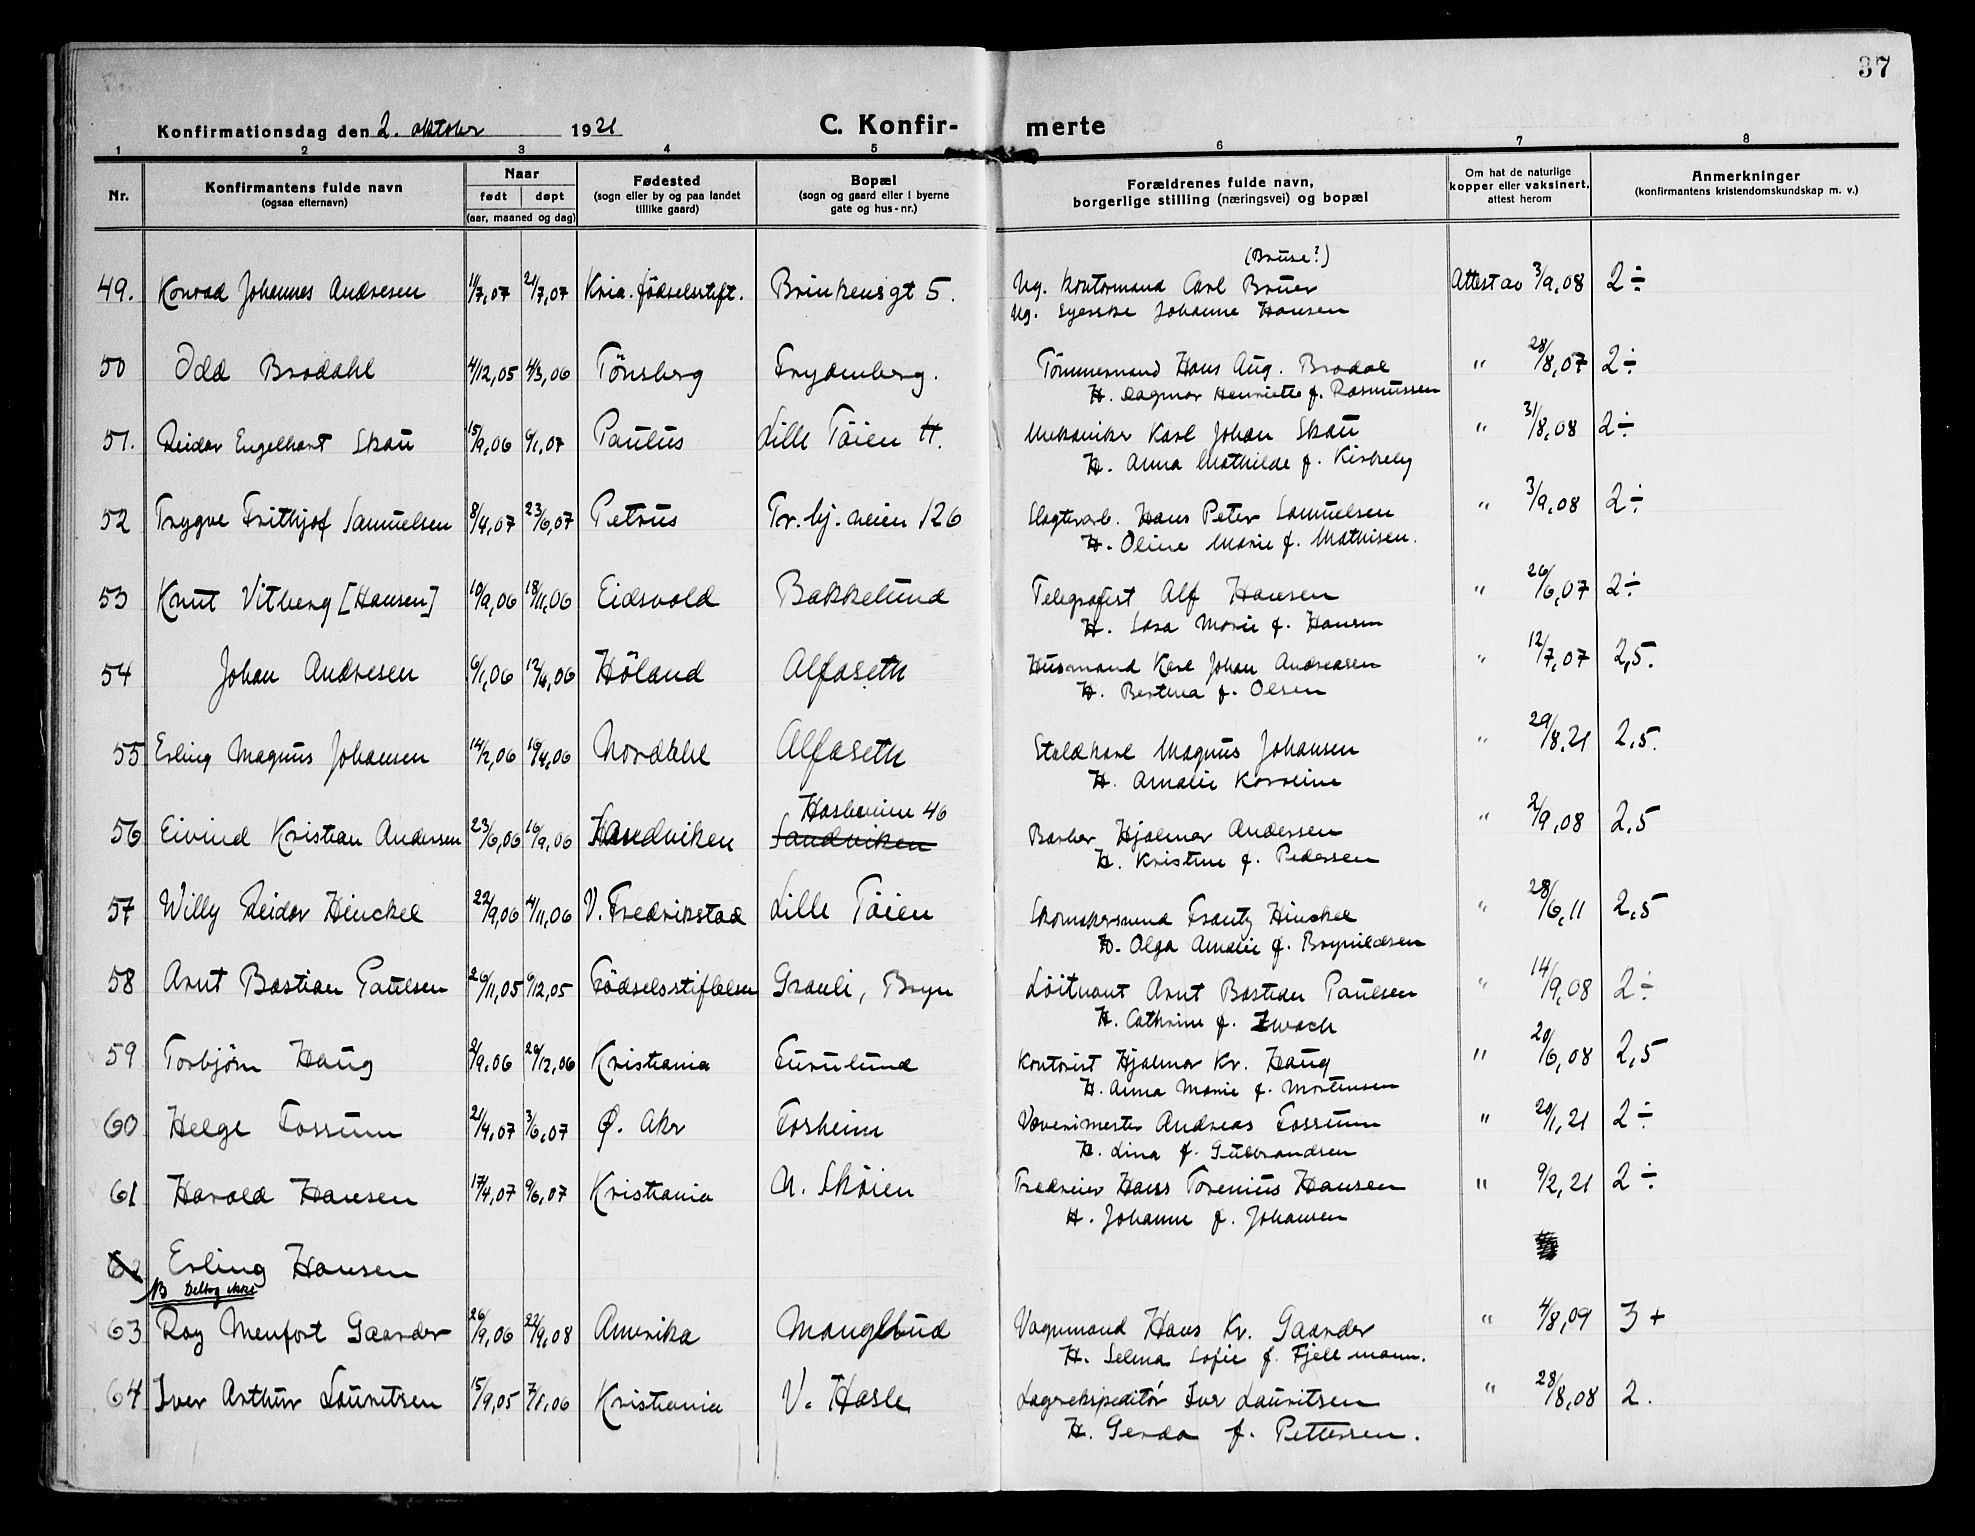 37
Konfirmationsdag den 2. oktober 1921
C. Konfir- merte
1 2 3 4 5 6 7 8
Nr.
Konfirmantens fulde navn
(ogsaa efternavn)
Naar
født døpt
(aar, maaned og dag)
Fødested
(sogn eller by og paa landet
tillike gaard)
Bopæl
(sogn og gaard eller i byerne
gate og hus-nr.)
Forældrenes fulde navn,
borgerlige stilling (næringsvei) og bopæl
Om hat de naturlige
kopper eller vaksinert,
attest herom
Anmerkninger
(konfirmantens kristendomskundskap m. v.)
(Bruse?)
49. Konrad Johannes Andresen 11/7,07 21/7,07 Kria. fødselsstift. Brinkensgt 5. Ug. Kontormand Carl Bruer Attest av 3/9,08 2÷
Ug. Syerske Johanne Hansen
50 Odd Brodahl 4/12,05 4/3,06 Tönsberg Frydenberg. Tömmermand Hans Aug. Brodal " 28/8,07 2÷
H. Dagmar Henriette f. Rasmussen
51. Reidar Engelhart Skau 15/9,06 6/1,07 Paulus Lille Töien H. Mekaniker Karl Johan Skau " 31/8,08 2÷
H. Anna Mathilde f. Kirkeby
52 Trygve Frithjof Samuelsen 8/4,07 23/6,07 Petrus Tr.hj.veien 126 Slagterarb. Hans Peter Samuelsen " 3/9,08 2÷
H. Oline Marie f. Mathisen.
53 Knut Vitberg [Hansen] 10/9,06 18/11,06 Eidsvold Bakkelund Telegrafist Alf Hansen " 26/6,07 2÷
H. Lara Marie f. Hansen
54 Johan Andresen 6/1,06 12/4,06 Höland Alfaseth Husmand Karl Johan Andreasen " 12/7,07 2,5.
H. Bertina f. Olsen
55 Erling Magnus Johansen 14/2,06 16/4,06 Nordahl Alfaseth Staldkarl Magnus Johansen " 29/8,21 2,5.
H. Amalie Karoline
Hasleveien 46
56 Eivind Kristian Andersen 23/6,06 16/9,06 Sandviken Sandviken Barber Hjalmar Andersen " 2/9,08 2,5
H. Kristine f. Pedersen
57 Willy Reidar Hinckel 22/9,06 4/11,06 V. Fredrikstad Lille Töien Skomakersvend Frantz Hinckel " 28/6,11 2,5
H. Olga Amalie f. Brynildsen
58 Arnt Bastian Paulsen 26/11,05 6/12,05 Födselsstiftelsen Grauli, Bryn Löitnant Arnt Bastian Paulsen " 14/9,08 2÷
H. Cathrine f. Zwack
59 Torbjörn Haug 2/9.06 26/12,06 Kristiania Furulund Kontorist Hjalmar Kr. Haug " 20/6,08 2,5
H. Anna Marie f. Mortensen
60 Helge Fossum 21/4,07 3/6,07 Ø. Akr Forheim Vævermester Andreas Fossum " 20/1,21 2÷
H. Lina f. Gulbrandsen
61 Harald Hansen 17/4,07 9/6,07 Kristiania N. Sköien Trædreier Hans Torenius Hansen " 9/2,21 2÷
H. Johanne f. Johansen
62 Erling Hansen
NB Deltog ikke
63 Roy Menfort Gaarder 26/9,06 22/9,08 Amerika Manglerud Vognmand Hans Kr. Gaarder " 4/8,09 3+
H. Selma Sofie f. Fjellmann.
64 Iver Arthur Lauritsen 15/9,05 7/1,06 Kristiania V. Hasle Lagerekspeditör Iver Lauritsen " 28/8,08 2.
H. Gerda f. Pettersen.